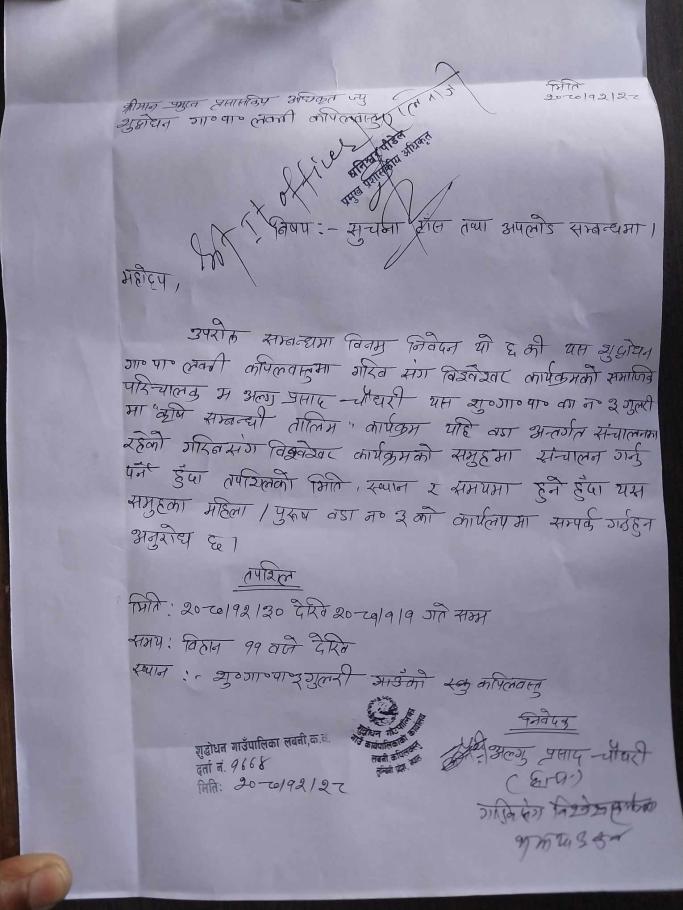 श्रीमान प्रमुख प्रशासकिय अधिकृत ज्यु
शुद्धोधन गा०पा० लवनी कपिलवस्तु
मिति
२०८०/१२/२८
IT officer
धनिश्वर पौडेल
प्रमुख प्रशासकीय अधिकृत
विषय :- सुचना टाँस तथा अपलोड सम्बन्धमा ।
महोदय,
उपरोक्त सम्बन्धमा विनम्र निवेदन यो छ की यस शुद्धोधन
गा०पा० लवनी कपिलवस्तुमा गरिव संग विश्वेश्वर कार्यक्रमको समाजिक
परिचालक म अल्गु प्रसाद चौधरी यस शु०गा०पा० वडा न० ३ गुलरी
मा "कृषि सम्बन्धी तालिम" कार्यक्रम यहि वडा अन्तर्गत संचालनमा
रहेको गरिवसंग विश्वेश्वर कार्यक्रमको समुहमा संचालन गर्नु
पर्ने हुँदा तपशिलको मिति, स्थान र समयमा हुने हुँदा यस
समुहका महिला / पुरूष वडा न० ३ को कार्यलयमा सम्पर्क गर्नहुन
अनुरोध छ ।
तपशिल
मिति : २०८०/१२/३० देखि २०८१/१/१ गते सम्म
समय : विहान ११ वजे देखि
स्थान :- शु०गा०पा ३ गुलरी गाउँको स्कु कपिलवस्तु
शुद्धोधन गाउँपालिका लवनी,क.व.
दर्ता नं. ९६६४
मिति: २०८०/१२/२८
शुद्धोधन गाउँपालिका
गाउँ कार्यपालिकाको कार्यालय
लवनी कपिलवस्तु
निवेदक
अल्गु प्रसाद चौधरी
गरिवसंग विश्वेश्वर